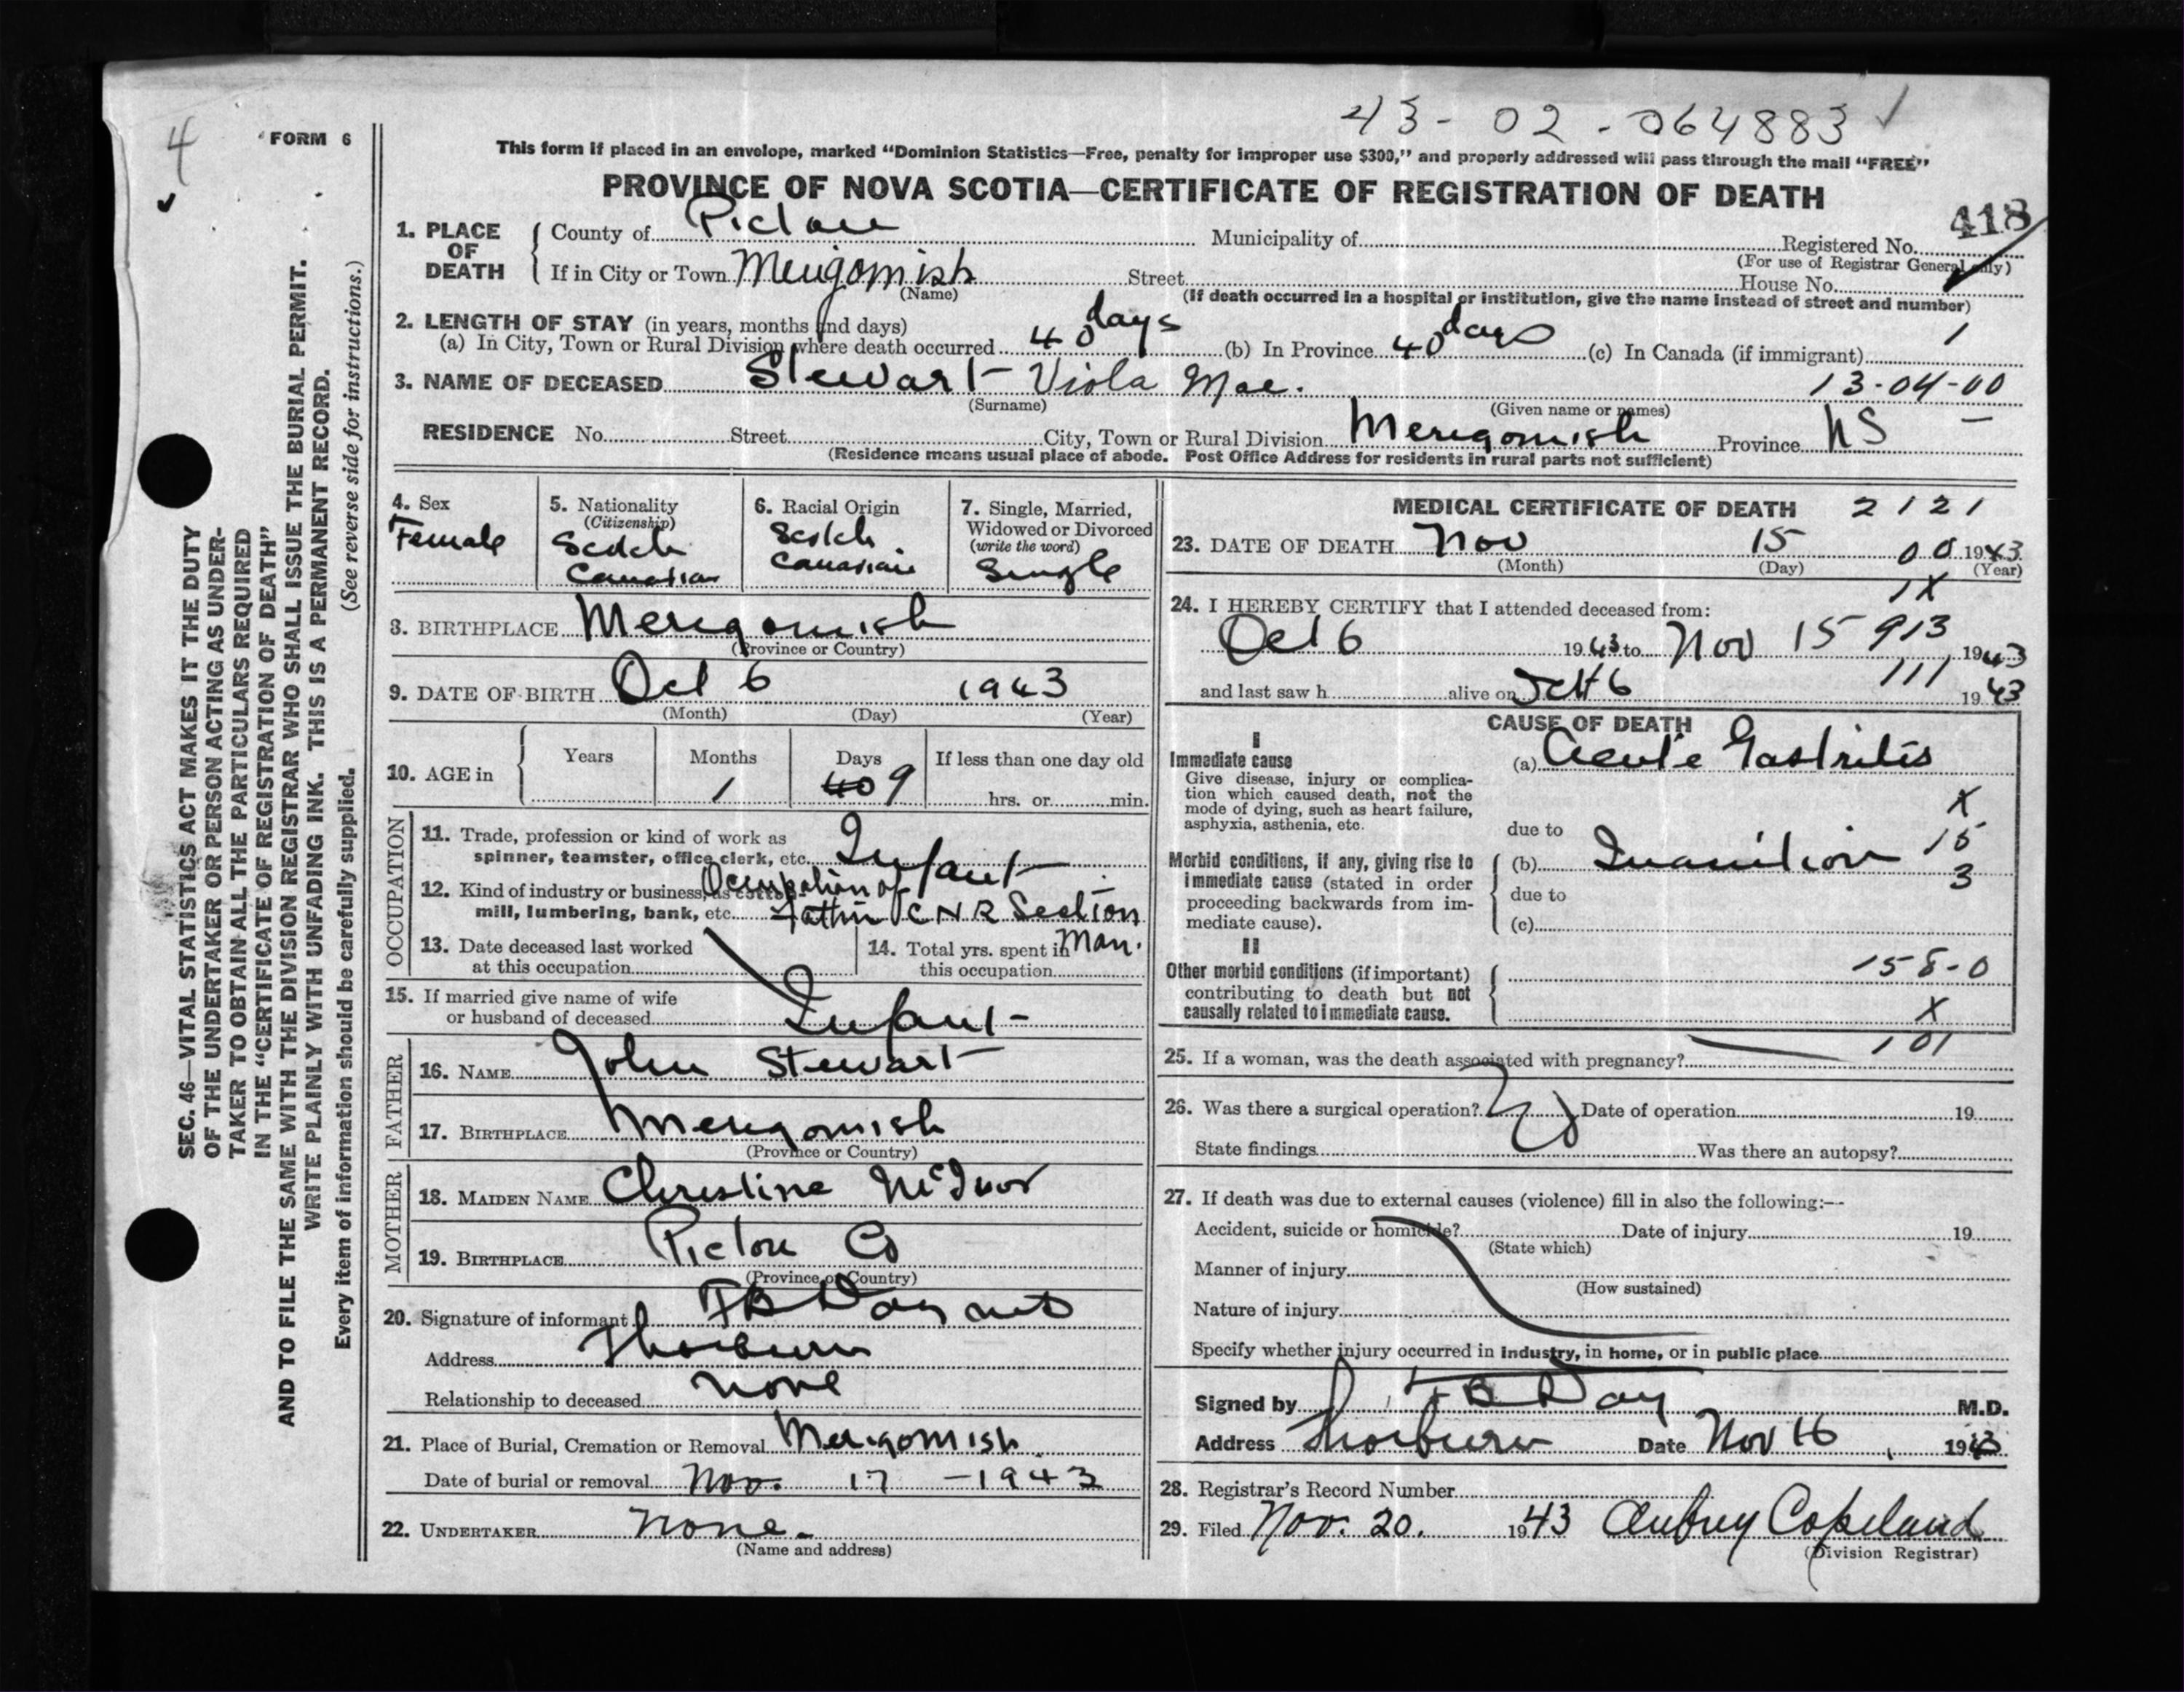 43-02-064883 ✓
4
FORM 6
This form if placed in an envelope, marked "Dominion Statistics—Free, penalty for improper use $300," and properly addressed will pass through the mail "FREE"
PROVINCE OF NOVA SCOTIA—CERTIFICATE OF REGISTRATION OF DEATH
418
1. PLACE OF DEATH
County of Pictou Municipality of Registered No.
(For use of Registrar General only)
If in City or Town Merigomish Street House No.
(Name)
(If death occurred in a hospital or institution, give the name instead of street and number)
2. LENGTH OF STAY (in years, months and days)
(a) In City, Town or Rural Division where death occurred 40 days (b) In Province 40 days (c) In Canada (if immigrant) 1
3. NAME OF DECEASED Stewart Viola Mae. 13-04-00
(Surname) (Given name or names)
RESIDENCE No. Street City, Town or Rural Division Merigomish Province NS
(Residence means usual place of abode. Post Office Address for residents in rural parts not sufficient)
4. Sex
Female
5. Nationality
(Citizenship)
Scotch
Canadian
6. Racial Origin
Scotch
Canadian
7. Single, Married,
Widowed or Divorced
(write the word)
Single
8. BIRTHPLACE Merigomish
(Province or Country)
9. DATE OF BIRTH Oct 6 1943
(Month) (Day) (Year)
10. AGE in
Years Months Days If less than one day old
1 40 9 hrs. or min.
OCCUPATION
11. Trade, profession or kind of work as
spinner, teamster, office clerk, etc. Infant
12. Kind of industry or business, as cotton Occupation of
mill, lumbering, bank, etc. Father CNR Section
13. Date deceased last worked
at this occupation
14. Total yrs. spent in Man.
this occupation
15. If married give name of wife
or husband of deceased Infant
FATHER
16. NAME John Stewart
17. BIRTHPLACE Merigomish
(Province or Country)
MOTHER
18. MAIDEN NAME Christine McIvor
19. BIRTHPLACE Pictou Co
(Province or Country)
20. Signature of informant FB Day MD
Address Thorburn
Relationship to deceased none
21. Place of Burial, Cremation or Removal Merigomish
Date of burial or removal Nov. 17 - 1943
22. UNDERTAKER none.
(Name and address)
MEDICAL CERTIFICATE OF DEATH 2121
23. DATE OF DEATH Nov 15 00 1943
(Month) (Day) (Year)
1X
24. I HEREBY CERTIFY that I attended deceased from:
Oct 6 1943 to Nov 15 913 1943
and last saw h alive on Oct 6 111 1943
CAUSE OF DEATH
I
Immediate cause
Give disease, injury or complica-
tion which caused death, not the
mode of dying, such as heart failure,
asphyxia, asthenia, etc.
(a) Acute Gastritis
X
due to
Morbid conditions, if any, giving rise to
immediate cause (stated in order
proceeding backwards from im-
mediate cause).
(b) Inanition 15
3
due to
(c)
II
Other morbid conditions (if important)
contributing to death but not
causally related to immediate cause.
158-0
X
101
25. If a woman, was the death associated with pregnancy?
26. Was there a surgical operation? Date of operation 19
State findings Was there an autopsy?
27. If death was due to external causes (violence) fill in also the following:—
Accident, suicide or homicide? Date of injury 19
(State which)
Manner of injury
(How sustained)
Nature of injury
Specify whether injury occurred in industry, in home, or in public place
Signed by FB Day M.D.
Address Thorburn Date Nov 16, 1943
28. Registrar's Record Number
29. Filed Nov. 20. 1943 Aubrey Copeland
(Division Registrar)
SEC. 46—VITAL STATISTICS ACT MAKES IT THE DUTY
OF THE UNDERTAKER OR PERSON ACTING AS UNDER-
TAKER TO OBTAIN ALL THE PARTICULARS REQUIRED
IN THE "CERTIFICATE OF REGISTRATION OF DEATH"
AND TO FILE THE SAME WITH THE DIVISION REGISTRAR WHO SHALL ISSUE THE BURIAL PERMIT.
WRITE PLAINLY WITH UNFADING INK. THIS IS A PERMANENT RECORD.
Every item of information should be carefully supplied. (See reverse side for instructions.)